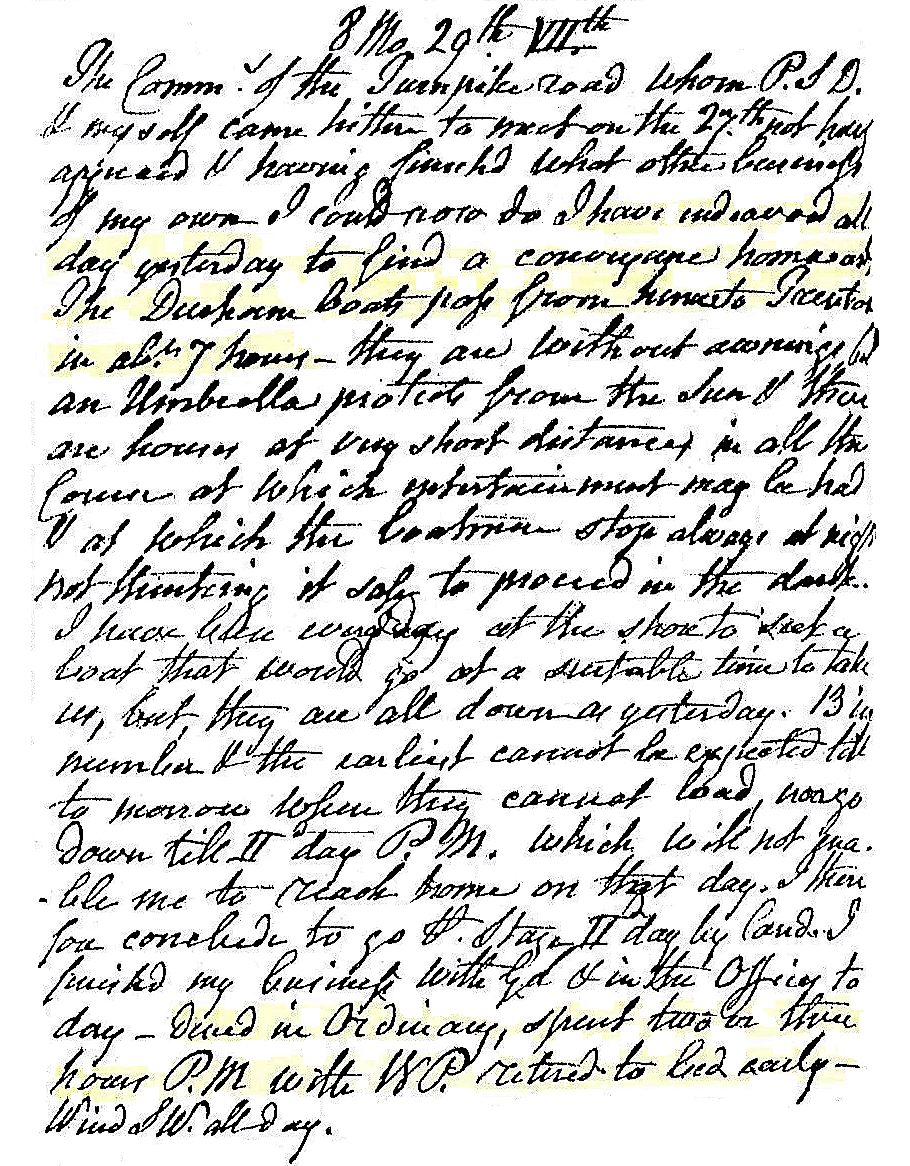 8 Mo 29th VIIth
The Commrs. of the Turnpike road whom P.S D.
& myself came hither to meet on the 27.th not havg
appeared & having finishd what other business
of my own I could now do I have indeavord all
day yesterday to find a conveyance homeward,
The Durham boats pass from hence to Trenton
in abt. 7 hours – they are without awnings but
an Umbrella protects from the Sun & there
are houses at very short distances in all the
Course at which entertainment may be had
& at which the boatmen stop always at night
not thinking it safe to proceed in the dark.
I have been every day at the shore to seek a
boat that would go at a suitable time to take
us, but, they are all down as yesterday. 13 in
number & the earliest cannot be expected till
to morrow when they cannot load, nor go
down till II day P.M. which will not ena-
-ble me to reach home on that day. I there
fore conclude to go &. Stage II day by Land. I
finishd my business with & in the Offices to
day – dined in Ordinary, spent two or three
hours P.M with WP. retired to bed early –
Wind SW. all day.